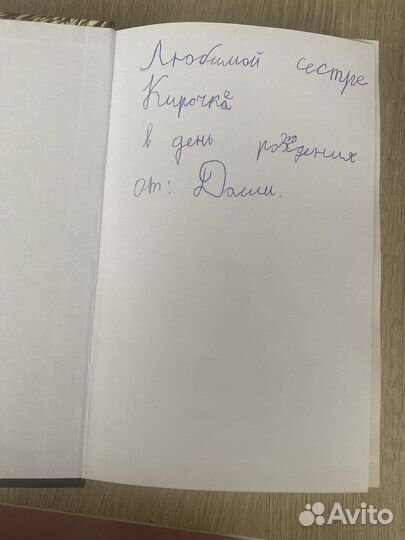 Любимой сестре
Кирочке
в день рождения
от: Даши.
Avito